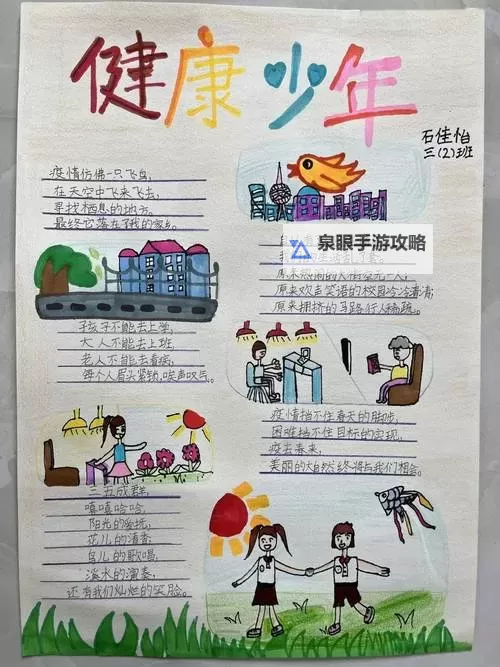 健康少年
石佳怡
三(2)班
疫情仿佛一只飞鸟,
在天空中飞来飞去,
寻找栖息的地方。
最终它落在了我的家乡。
泉眼手游攻略
原来欢声笑语的校园冷冷清清,
原来拥挤的马路行人稀疏。
孩子不能去上学,
大人不能去上班,
老人不能去看病,
每个人眉头紧锁,唉声叹气。
疫情挡不住春天的脚步,
困难挡不住目标的实现,
疫去春来,
美丽的大自然终将与我们相会。
三五成群,
嘻嘻哈哈,
阳光的轻抚,
花儿的清香,
鸟儿的歌唱,
溪水的演奏,
还有我们灿烂的笑脸。